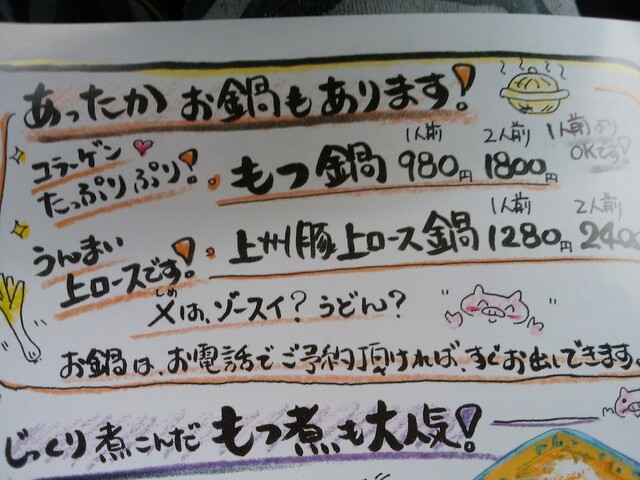 あったか お鍋もあります!
1人前 2人前 1人前より
OKです!
コラーゲン
たっぷりぷり! ・もつ鍋 980円 1800円
1人前 2人前
うんまい
上ロースです! ・上州豚上ロース鍋 1280円 2400
しめ
〆は、ゾースイ?うどん?
お鍋は、お電話でご予約頂ければ、すぐお出しできます
じっくり煮こんだ もつ煮も大人気!